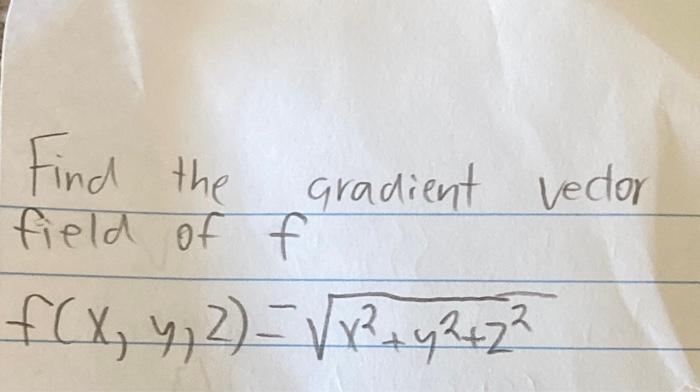 Find the gradient vector
field of f
f(x, y, z) = √x²+y²+z²